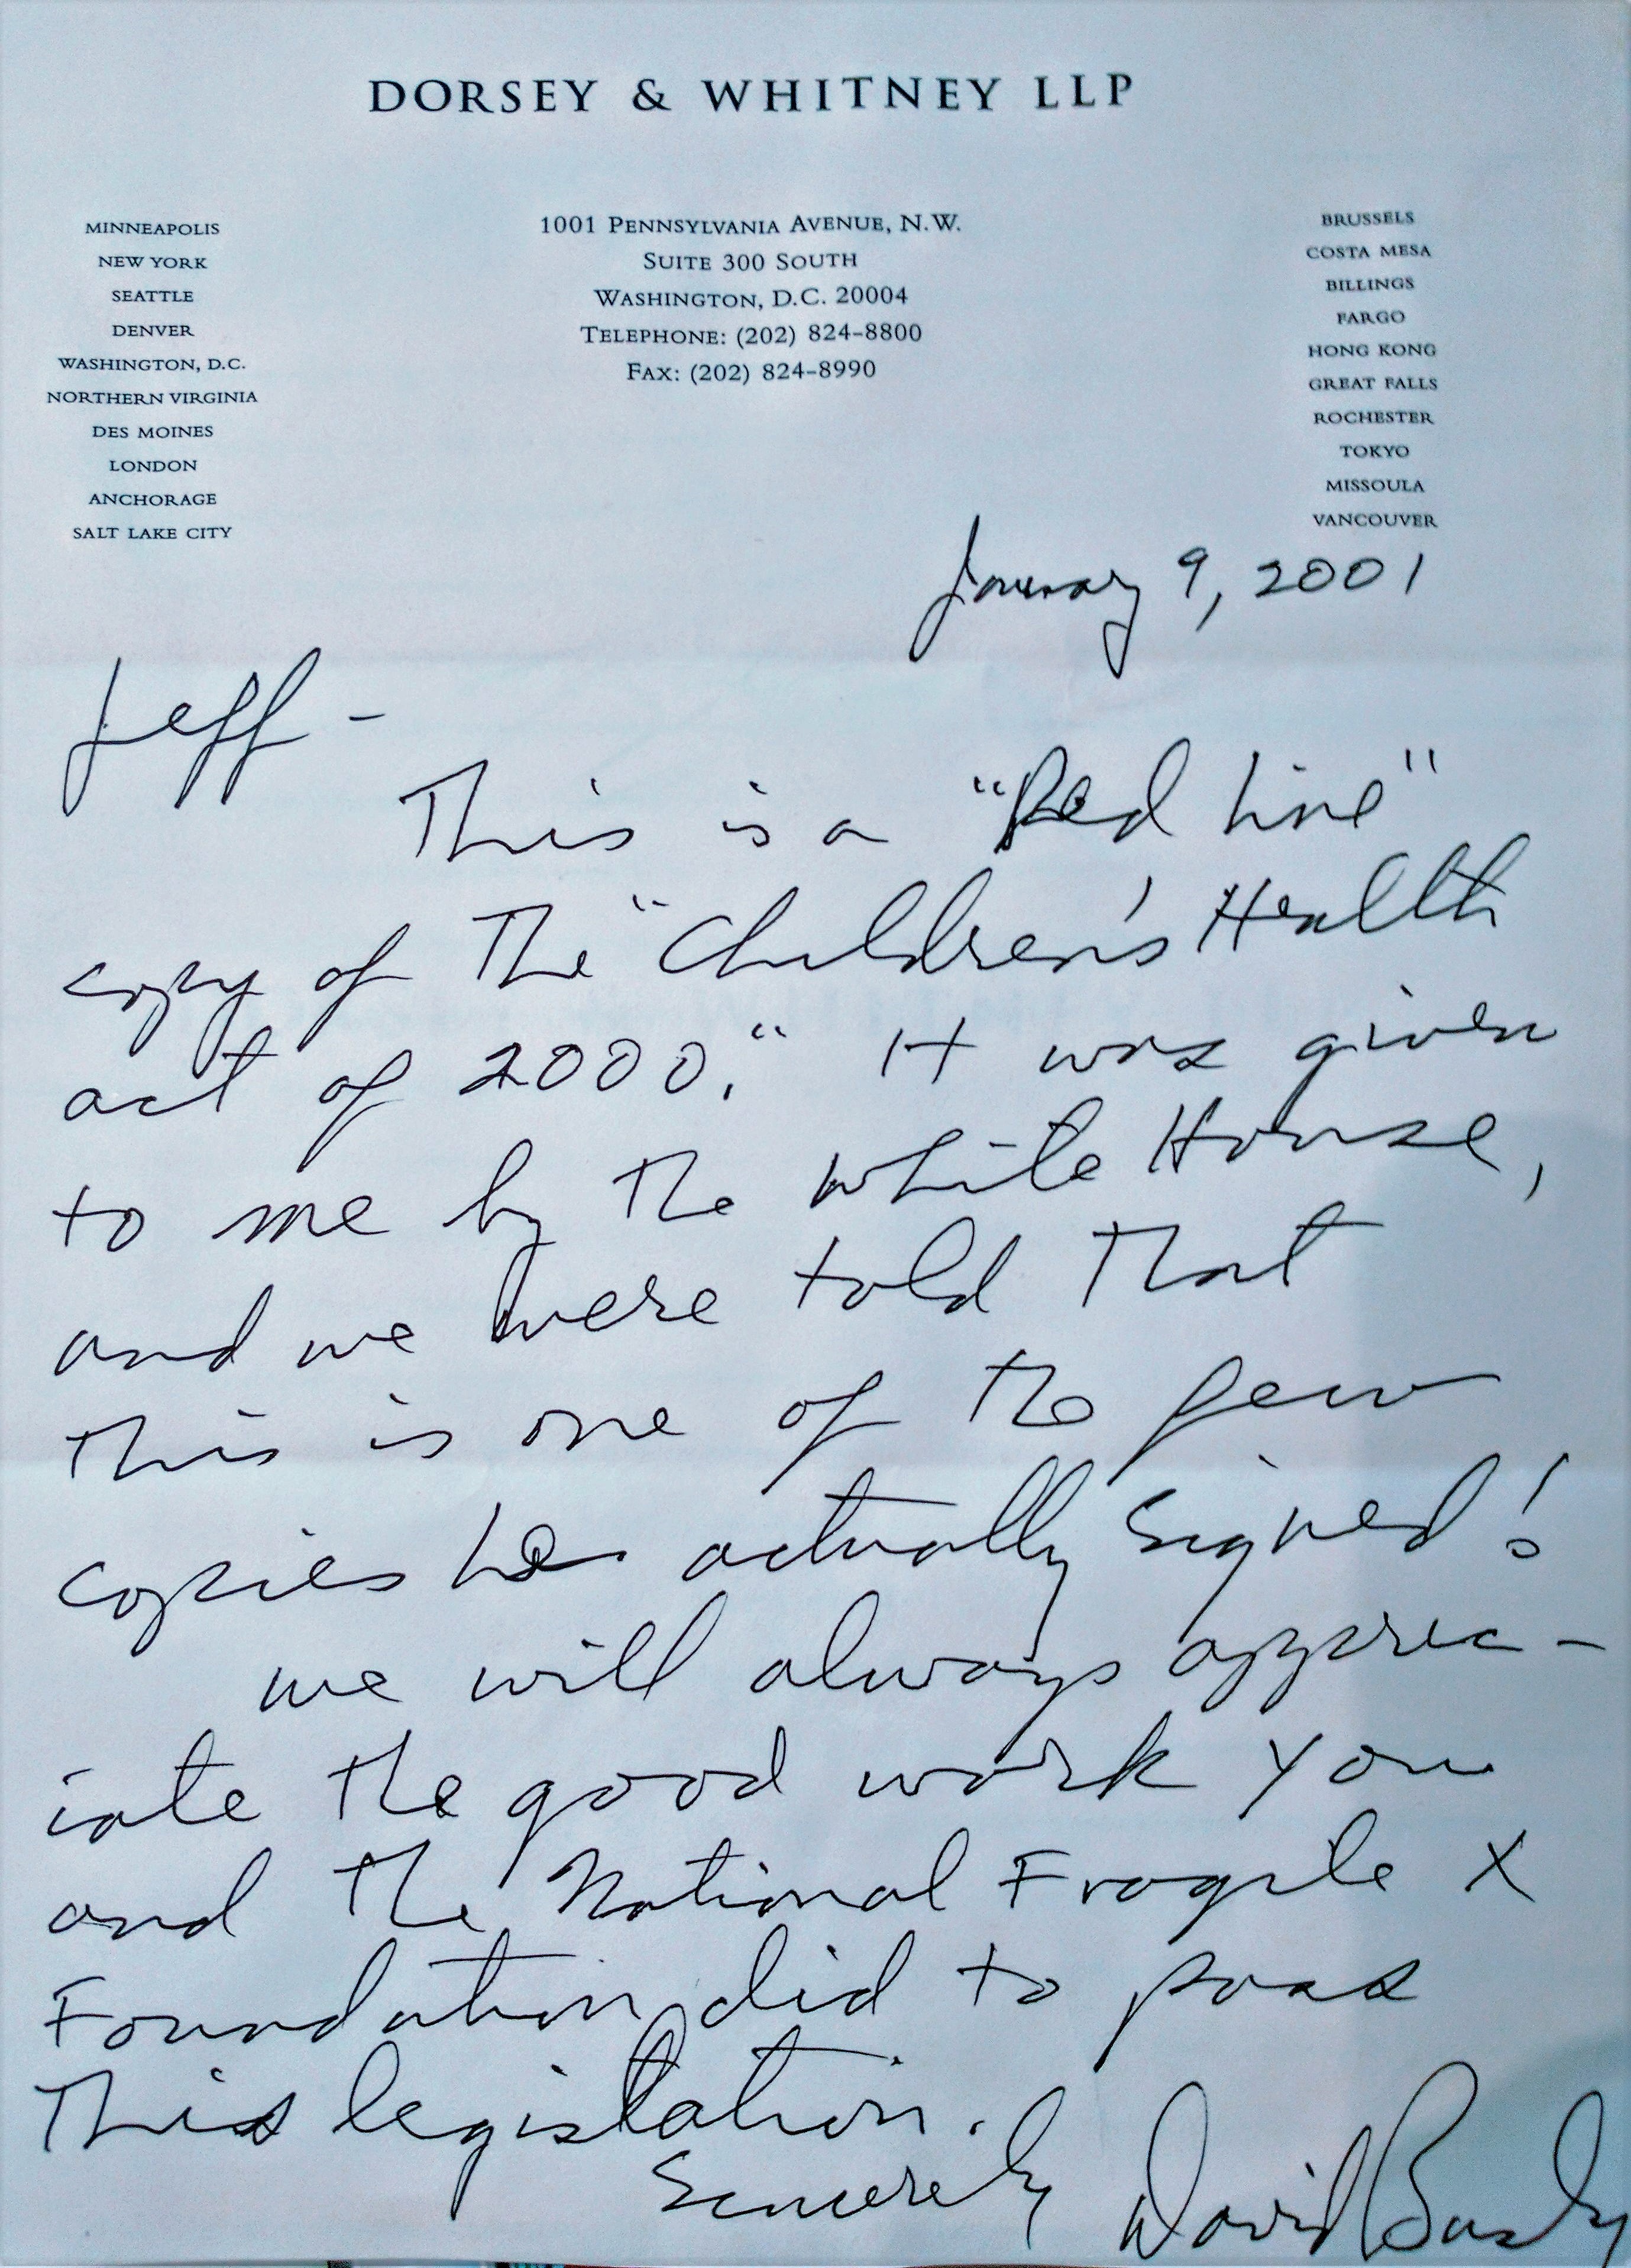 DORSEY & WHITNEY LLP
MINNEAPOLIS
NEW YORK
SEATTLE
DENVER
WASHINGTON, D.C.
NORTHERN VIRGINIA
DES MOINES
LONDON
ANCHORAGE
SALT LAKE CITY
1001 PENNSYLVANIA AVENUE, N.W.
SUITE 300 SOUTH
WASHINGTON, D.C. 20004
TELEPHONE: (202) 824-8800
FAX: (202) 824-8990
BRUSSELS
COSTA MESA
BILLINGS
FARGO
HONG KONG
GREAT FALLS
ROCHESTER
TOKYO
MISSOULA
VANCOUVER
January 9, 2001
Jeff -
This is a "Red Line"
copy of the "Children's Health
act of 2000." It was given
to me by the White House,
and we were told that
this is one of the few
copies he actually signed!
we will always apprec-
iate the good work you
and the National Fragile X
Foundation did to pass
this legislation.
Sincerely David Busby